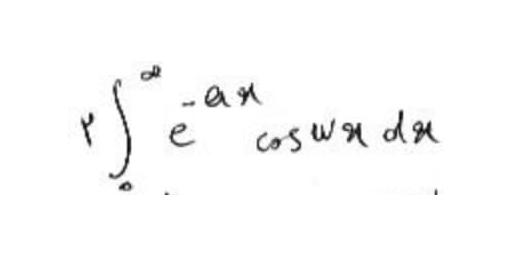 ۲∫₀^∞ e^{-ax} cos wx dx